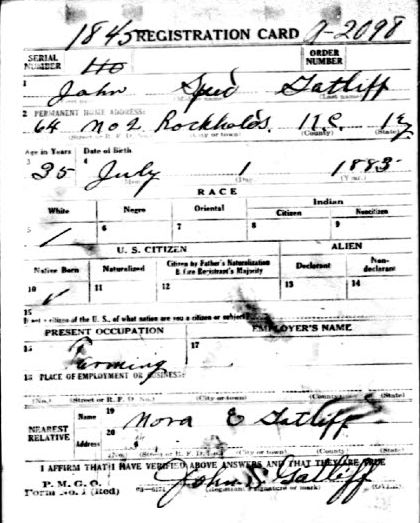 1845 REGISTRATION CARD A-2098
SERIAL NUMBER 110 ORDER NUMBER
1 John Speed Gatliff
2 PERMANENT HOME ADDRESS:
64 No 2 Rockholds. Ky
(Street or R. F. D. No.) (City or town) (County) (State)
Age in Years Date of Birth
3 35 4 July 1 1883
(Month) (Day) (Year)
RACE
White Negro Oriental Indian
Citizen Noncitizen
5 / 6 7 8 9
U. S. CITIZEN ALIEN
Native Born Naturalized Citizen by Father's Naturalization & Ere Registrant's Majority Declarant Non-declarant
10 ✓ 11 12 13 14
15
If not a citizen of the U. S., of what nation are you a citizen or subject?
PRESENT OCCUPATION EMPLOYER'S NAME
16 Farming 17
18 PLACE OF EMPLOYMENT OR BUSINESS:
(No.) (Street or R. F. D. No.) (City or town) (County) (State)
NEAREST RELATIVE Name 19 Nora E Gatliff
Address 20
(No.) (Street or R. F. D. No.) (City or town) (County) (State)
I AFFIRM THAT I HAVE VERIFIED ABOVE ANSWERS AND THAT THEY ARE TRUE
P. M. G. O.
Form No. 1 (Red) John S. Gatliff
(Registrant's signature or mark)